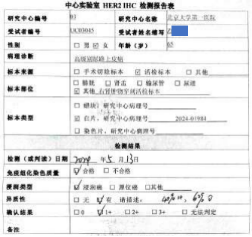 中心实验室 HER2 IHC 检测报告表
研究中心编号 01 研究中心名称 北京大学第一医院
受试者编号 受试者姓名缩写
性别 □ 男 ☑ 女 年龄（岁） 65
病理诊断 高级别尿路上皮癌
标本来源 □ 手术切除标本 ☑ 活检标本 □ 其他
标本部位 □ 膀胱 □ 肾盂 □ 输尿管 □ 尿道
☑ 其他
标本类型 □（蜡块）研究中心病理号
☑ 白片，研究中心病理号
□ 染色片，研究中心病理号
检测结果
检测（或判读）日期 2024 年 5 月 13 日
免疫组化染色质量 ☑ 合格 □ 不合格
浸润类型 ☑ 浸润癌 □ 原位癌 □ 其他
异质性 □ 无 ☑ 有 请描述：
确认结果 □ 0 ☑ 1+ □ 2+ □ 3+ □ 无法判定
备注